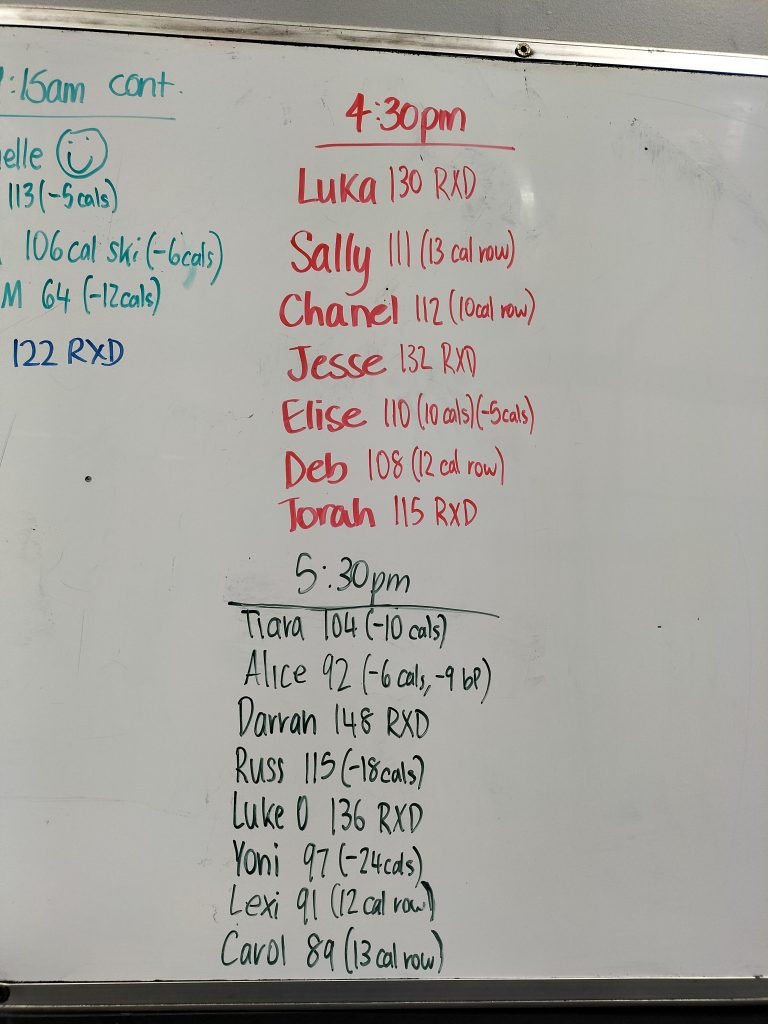 :15am cont.
elle
113 (-5cals)
106cal ski (-6cals)
M 64 (-12cals)
122 RXD
4:30pm
Luka 130 RXD
Sally 111 (13 cal row)
Chanel 112 (10cal row)
Jesse 132 RXD
Elise 110 (10 cals)(-5cals)
Deb 108 (12 cal row)
Torah 115 RXD
5:30pm
Tiara 104 (-10 cals)
Alice 92 (-6 cals, -9 bp)
Darrah 148 RXD
Russ 115 (-18cals)
Luke O 136 RXD
Yoni 97 (-24cals)
Lexi 91 (12 cal row)
Carol 89 (13 cal row)